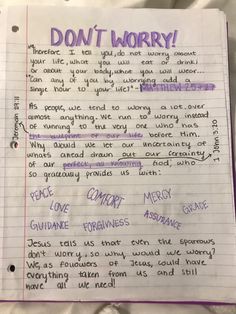 DON'T WORRY!
"Therefore I tell you, do not worry about
your life, what you will eat or drink;
or about your body, what you will wear...
"Can any of you by worrying add a
single hour to your life?" - MATTHEW 25+27
Jeremiah 29:11
As people, we tend to worry a lot, over
almost anything. We run to worry instead
of running to the very one who has
the blueprint of our life before Him.
Why would we let our uncertainty of
what's ahead drawn out our certainty
of our perfect, all knowing God, who
so graciously provides us with:
1 John 3:20
PEACE COMFORT MERCY
LOVE ASSURANCE GRACE
GUIDANCE FORGIVNESS
Jesus tells us that even the sparrows
don't worry, so why would we worry?
We, as followers of Jesus, could have
everything taken from us and still
have all we need!